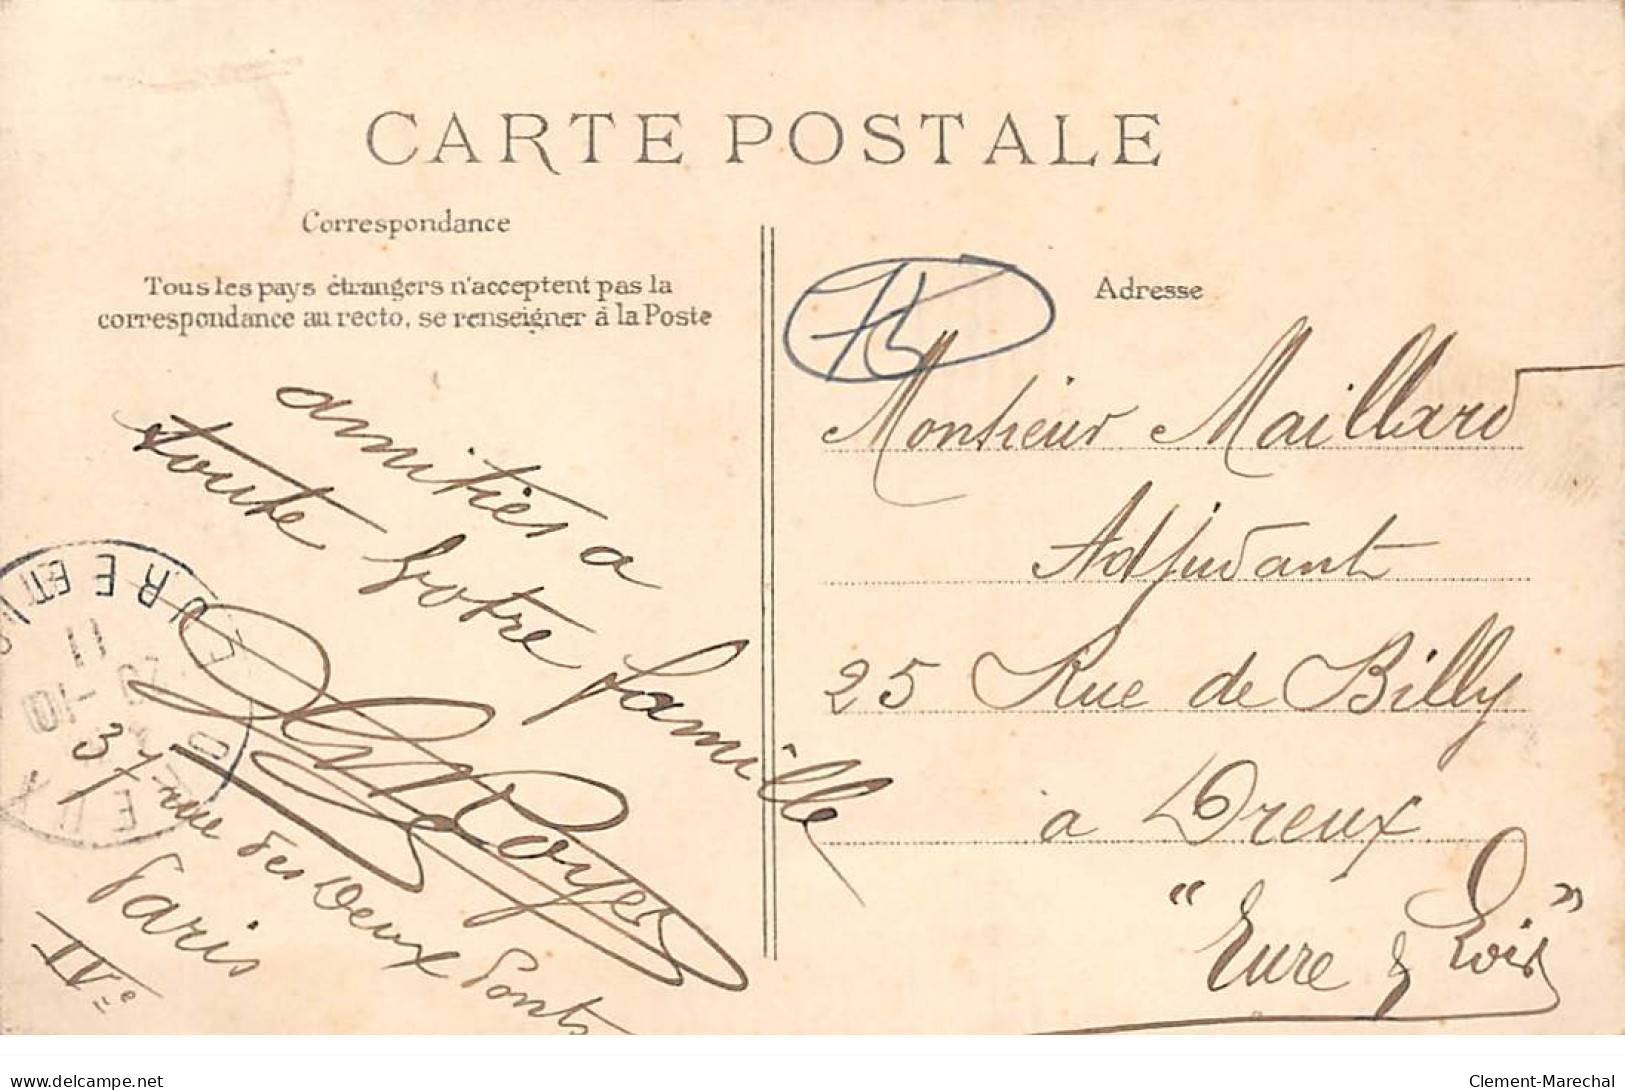 CARTE POSTALE
Correspondance
Tous les pays étrangers n'acceptent pas la
correspondance au recto, se renseigner à la Poste
amitiés a
toute votre famille
37 rue des Deux Ponts
Paris
IVe
EURE ET
11
Adresse
Monsieur Maillard
Adjudant
25 Rue de Billy
à Dreux
"Eure & Loir"
delcampe.net
Clement-Marechal